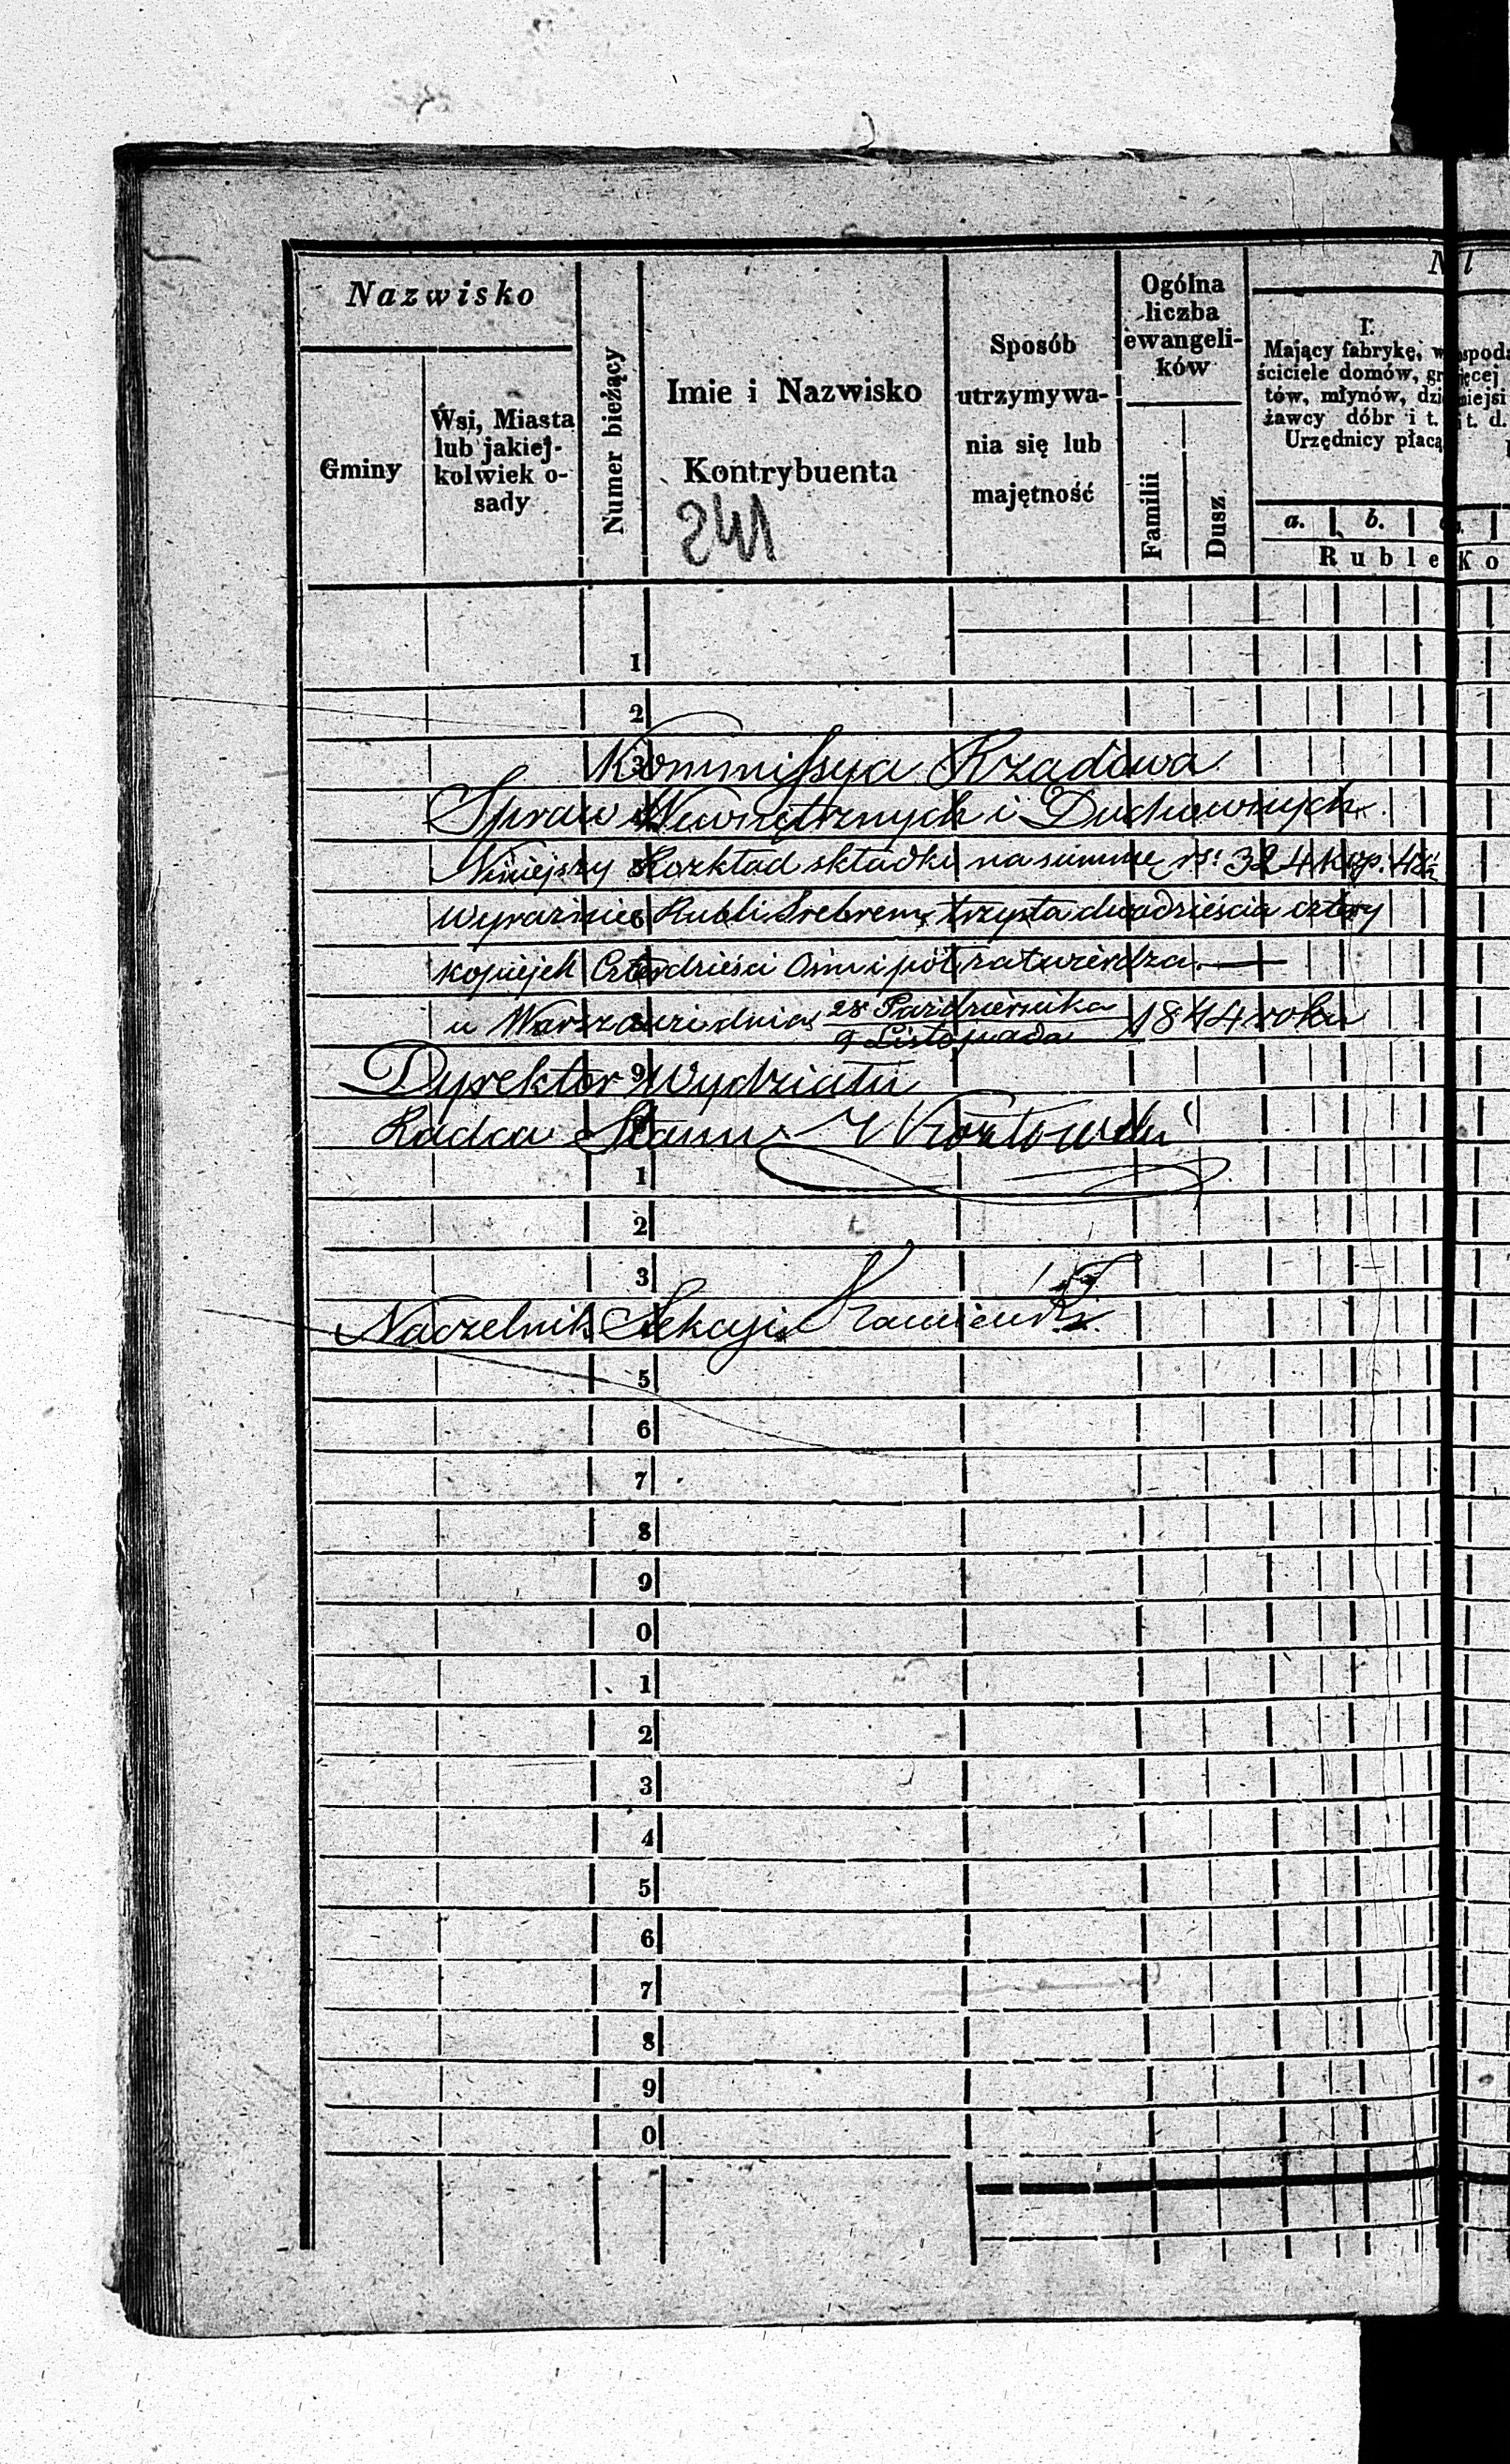 Nazwisko
Gminy
Wsi, Miasta
lub jakiej-
kolwiek o-
sady
Numer bieżący
Imie i Nazwisko
Kontrybuenta
241
Sposób
utrzymywa-
nia się lub
majętność
Ogólna
liczba
ewangeli-
ków
Familii
Dusz
I.
Mający fabrykę, w
ściciele domów, gr
tów, młynów, dzi
żawcy dóbr i t.
Urzędnicy płacą
a. b.
Ruble Ko
1
2
3
Kommissya Rządowa
Spraw Wewnętrznych i Duchownych
Niniejszy Rozkład składki na summę rs: 324 kop. 48½
wyraźnie Rubli Srebrem trzysta dwadzieścia cztery
kopiejek Czterdzieści Ośm i pół zatwierdza.
w Warszawie dnia 28 Października / 9 Listopada 1844 roku
Dyrektor Wydziału
Radca Stanu Kozłowski
1
2
3
Naczelnik Sekcyi Kamieński
5
6
7
8
9
0
1
2
3
4
5
6
7
8
9
0